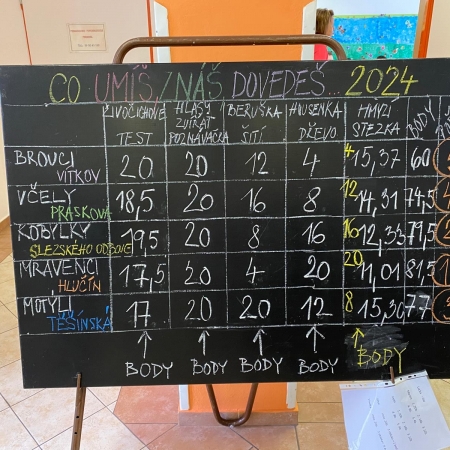 CO UMÍŠ, ZNÁŠ, DOVEDEŠ... 2024
ŽIVOČICHOVÉ TEST HLASY ZVÍŘAT POZNÁVAČKA BERUŠKA ŠITÍ HOUSENKA DŘEVO HMYZÍ STEZKA BODY
BROUCI VÍTKOV 20 20 12 4 4 15,37 60
VČELY PRASKOVA 18,5 20 16 8 12 14,31 74,5
KOBYLKY SLEZSKÉHO ODBOJE 19,5 20 8 16 16 12,33 79,5
MRAVENCI HLUČÍN 17,5 20 4 20 20 11,01 81,5
MOTÝLI TĚŠÍNSKÁ 17 20 20 12 8 15,30 77
BODY BODY BODY BODY BODY